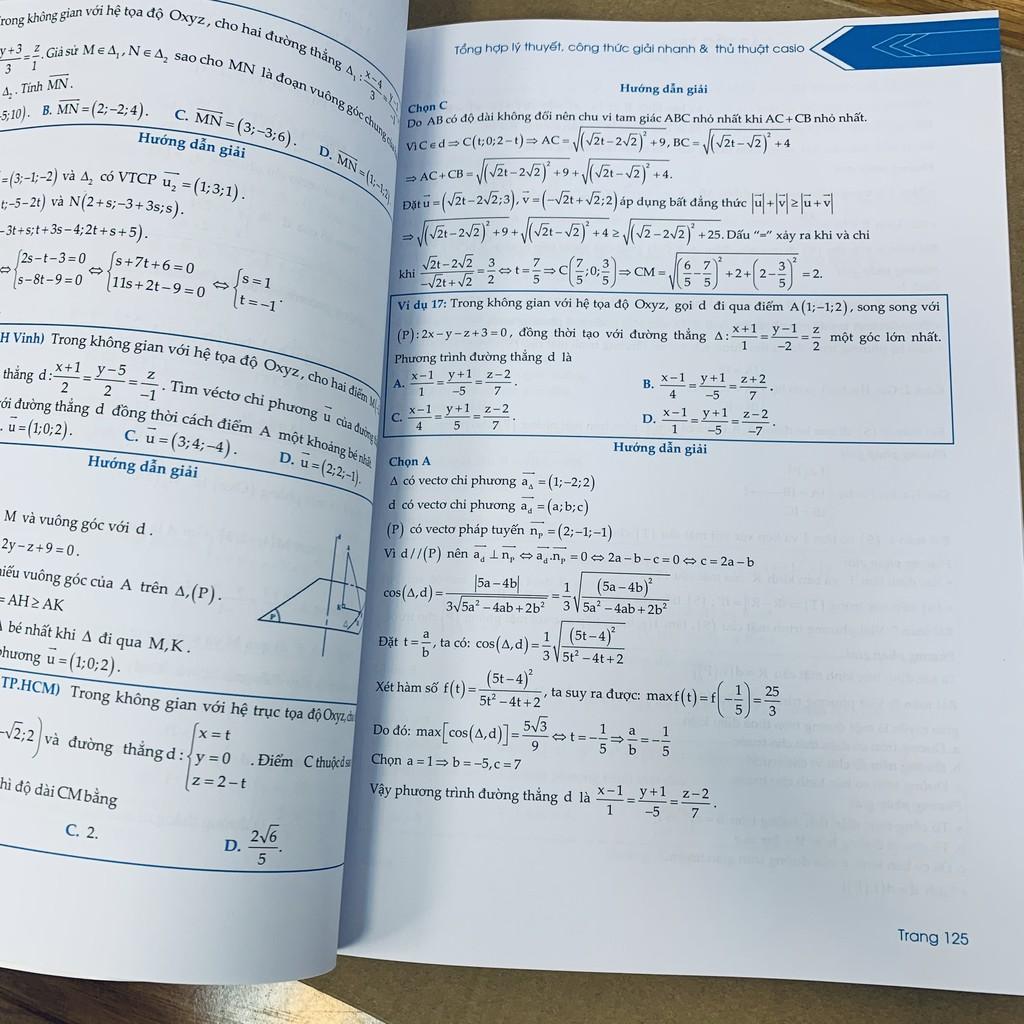 Trong không gian với hệ tọa độ Oxyz, cho hai đường thẳng Δ₁: (x−4)/3 = (y−1)/
(y+3)/3 = z/1. Giả sử M∈Δ₁, N∈Δ₂ sao cho MN là đoạn vuông góc chung của
Δ₂. Tính MN⃗.
5;10). B. MN⃗ = (2;−2;4). C. MN⃗ = (3;−3;6). D. MN⃗ = (1;−1;2)
Hướng dẫn giải
=(3;−1;−2) và Δ₂ có VTCP u₂⃗ = (1;3;1).
t;−5−2t) và N(2+s;−3+3s;s).
−3t+s;t+3s−4;2t+s+5).
⇔ {2s−t−3=0; s−8t−9=0 ⇔ {s+7t+6=0; 11s+2t−9=0 ⇔ {s=1; t=−1.
H Vinh) Trong không gian với hệ tọa độ Oxyz, cho hai điểm M(
thẳng d: (x+1)/2 = (y−5)/2 = z/−1. Tìm véctơ chỉ phương u⃗ của đường
với đường thẳng d đồng thời cách điểm A một khoảng bé nhất.
u⃗ = (1;0;2). C. u⃗ = (3;4;−4). D. u⃗ = (2;2;−1).
Hướng dẫn giải
M và vuông góc với d.
2y−z+9=0.
hiếu vuông góc của A trên Δ,(P).
=AH≥AK
bé nhất khi Δ đi qua M,K.
phương u⃗ = (1;0;2).
TP.HCM) Trong không gian với hệ trục tọa độ Oxyz,
−√2;2) và đường thẳng d: {x=t; y=0; z=2−t. Điểm C thuộc d
hì độ dài CM bằng
C. 2. D. 2√6/5.
Tổng hợp lý thuyết, công thức giải nhanh & thủ thuật casio
Hướng dẫn giải
Chọn C
Do AB có độ dài không đổi nên chu vi tam giác ABC nhỏ nhất khi AC+CB nhỏ nhất.
Vì C∈d ⇒ C(t;0;2−t) ⇒ AC = √((√2t−2√2)²+9), BC = √((√2t−√2)²+4)
⇒ AC+CB = √((√2t−2√2)²+9) + √((√2t−√2)²+4).
Đặt u⃗ = (√2t−2√2;3), v⃗ = (−√2t+√2;2) áp dụng bất đẳng thức |u⃗|+|v⃗| ≥ |u⃗+v⃗|
⇒ √((√2t−2√2)²+9) + √((√2t−√2)²+4) ≥ √((√2−2√2)²+25). Dấu “=” xảy ra khi và chỉ
khi (√2t−2√2)/(−√2t+√2) = 3/2 ⇔ t = 7/5 ⇒ C(7/5;0;3/5) ⇒ CM = √((6/5−7/5)²+2+(2−3/5)²) = 2.
Ví dụ 17: Trong không gian với hệ tọa độ Oxyz, gọi d đi qua điểm A(1;−1;2), song song với
(P): 2x−y−z+3=0, đồng thời tạo với đường thẳng Δ: (x+1)/1 = (y−1)/−2 = z/2 một góc lớn nhất.
Phương trình đường thẳng d là
A. (x−1)/1 = (y+1)/−5 = (z−2)/7. B. (x−1)/4 = (y+1)/−5 = (z+2)/7.
C. (x−1)/4 = (y+1)/5 = (z−2)/7. D. (x−1)/1 = (y+1)/−5 = (z−2)/−7.
Hướng dẫn giải
Chọn A
Δ có vectơ chỉ phương a_Δ⃗ = (1;−2;2)
d có vectơ chỉ phương a_d⃗ = (a;b;c)
(P) có vectơ pháp tuyến n_P⃗ = (2;−1;−1)
Vì d//(P) nên a_d⃗ ⊥ n_P⃗ ⇔ a_d⃗.n_P⃗ = 0 ⇔ 2a−b−c=0 ⇔ c=2a−b
cos(Δ,d) = |5a−4b|/(3√(5a²−4ab+2b²)) = 1/3 √((5a−4b)²/(5a²−4ab+2b²))
Đặt t = a/b, ta có: cos(Δ,d) = 1/3 √((5t−4)²/(5t²−4t+2))
Xét hàm số f(t) = (5t−4)²/(5t²−4t+2), ta suy ra được: max f(t) = f(−1/5) = 25/3
Do đó: max[cos(Δ,d)] = 5√3/9 ⇔ t = −1/5 ⇒ a/b = −1/5
Chọn a=1 ⇒ b=−5, c=7
Vậy phương trình đường thẳng d là (x−1)/1 = (y+1)/−5 = (z−2)/7.
Trang 125